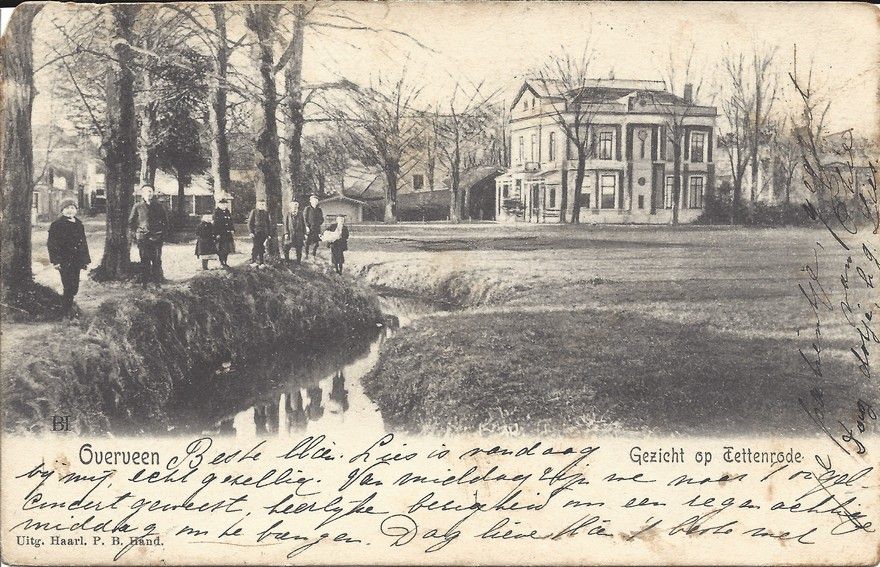 BI
Overveen
Gezicht op Tettenrode
Beste Mien. Lies is vandaag
bij mij echt gezellig. Van middag zijn we naar 't orgel-
concert geweest, heerlijke bezigheid om een regenachtige
middag om te brengen. Dag lieve Mien 't beste met
Uitg. Haarl. P. B. Hand.